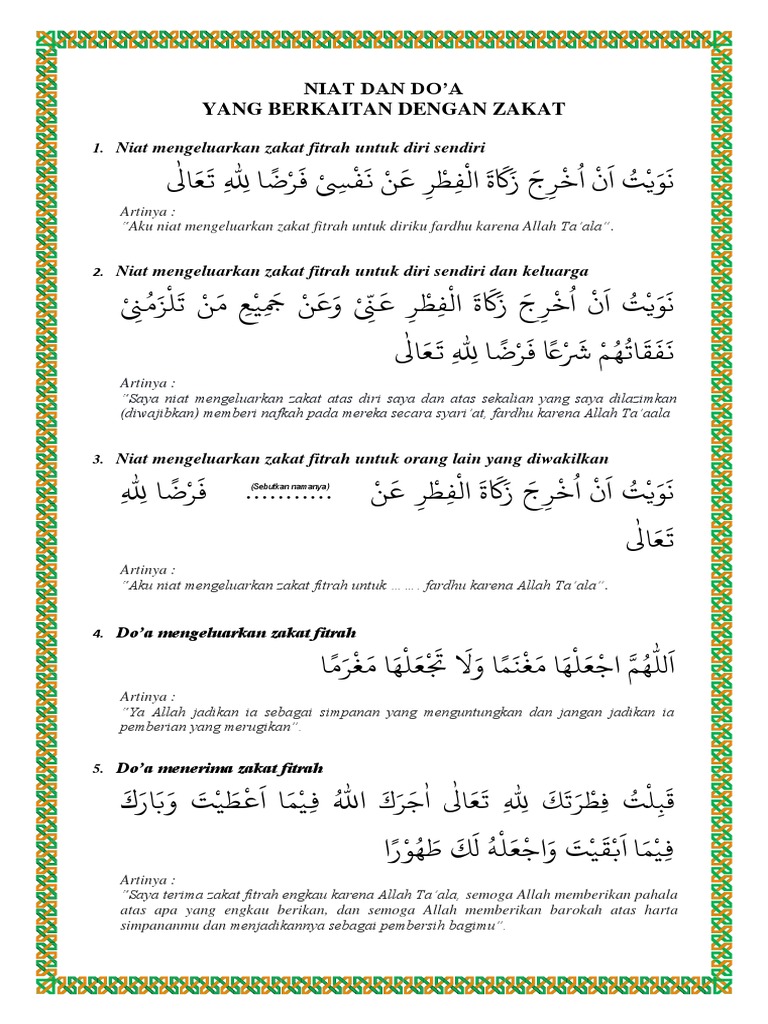 NIAT DAN DO’A
YANG BERKAITAN DENGAN ZAKAT
1. Niat mengeluarkan zakat fitrah untuk diri sendiri
نَوَيْتُ اَنْ اُخْرِجَ زَكَاةَ الْفِطْرِ عَنْ نَفْسِىْ فَرْضًا لِلّٰهِ تَعَالٰى
Artinya :
“Aku niat mengeluarkan zakat fitrah untuk diriku fardhu karena Allah Ta’ala”.
2. Niat mengeluarkan zakat fitrah untuk diri sendiri dan keluarga
نَوَيْتُ اَنْ اُخْرِجَ زَكَاةَ الْفِطْرِ عَنِّىْ وَعَنْ جَمِيْعِ مَنْ تَلْزَمُنِىْ
نَفَقَاتُهُمْ شَرْعًا فَرْضًا لِلّٰهِ تَعَالٰى
Artinya :
“Saya niat mengeluarkan zakat atas diri saya dan atas sekalian yang saya dilazimkan
(diwajibkan) memberi nafkah pada mereka secara syari’at, fardhu karena Allah Ta’aala
3. Niat mengeluarkan zakat fitrah untuk orang lain yang diwakilkan
نَوَيْتُ اَنْ اُخْرِجَ زَكَاةَ الْفِطْرِ عَنْ ........... (Sebutkan namanya) فَرْضًا لِلّٰهِ
تَعَالٰى
Artinya :
“Aku niat mengeluarkan zakat fitrah untuk ……. fardhu karena Allah Ta’ala”.
4. Do’a mengeluarkan zakat fitrah
اَللّٰهُمَّ اجْعَلْهَا مَغْنَمًا وَلَا تَجْعَلْهَا مَغْرَمًا
Artinya :
“Ya Allah jadikan ia sebagai simpanan yang menguntungkan dan jangan jadikan ia
pemberian yang merugikan”.
5. Do’a menerima zakat fitrah
قَبِلْتُ فِطْرَتَكَ لِلّٰهِ تَعَالٰى اٰجَرَكَ اللهُ فِيْمَا اَعْطَيْتَ وَبَارَكَ
فِيْمَا اَبْقَيْتَ وَاجْعَلْهُ لَكَ طَهُوْرًا
Artinya :
“Saya terima zakat fitrah engkau karena Allah Ta’ala, semoga Allah memberikan pahala
atas apa yang engkau berikan, dan semoga Allah memberikan barokah atas harta
simpananmu dan menjadikannya sebagai pembersih bagimu”.